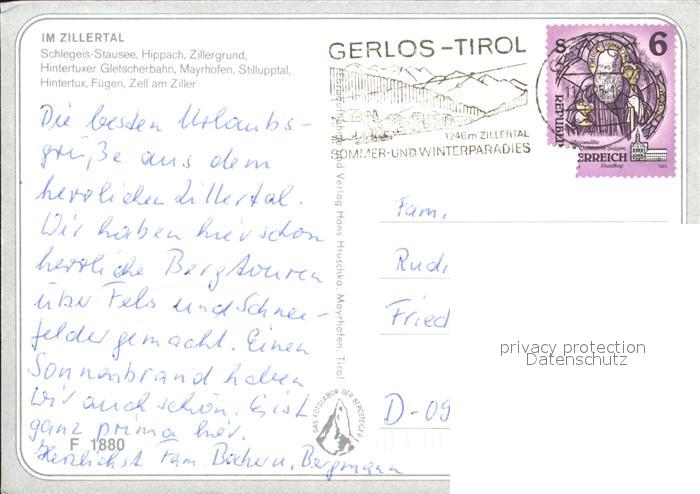 IM ZILLERTAL
Schlegeis-Stausee, Hippach, Zillergrund,
Hintertuxer Gletscherbahn, Mayrhofen, Stillupptal,
Hintertux, Fügen, Zell am Ziller
Die besten Urlaubs-
grüße aus dem
herrlichen Zillertal.
Wir haben hier schon
herrliche Bergtouren
über Fels und Schnee-
felder gemacht. Einen
Sonnenbrand haben
wir auch schön. Es ist
ganz prima hier.
F 1880
Herzlichst Fam. Bergmann
GERLOS-TIROL
1246m ZILLERTAL
SOMMER-UND WINTERPARADIES
S 6
REPUBL
ERREICH
Verlag Hans Hruschka, Mayrhofen, Tirol
DAS FOTOLABOR DER BERGSTEIGER
Fam.
Rudi
Fried
D-09
privacy protection
Datenschutz